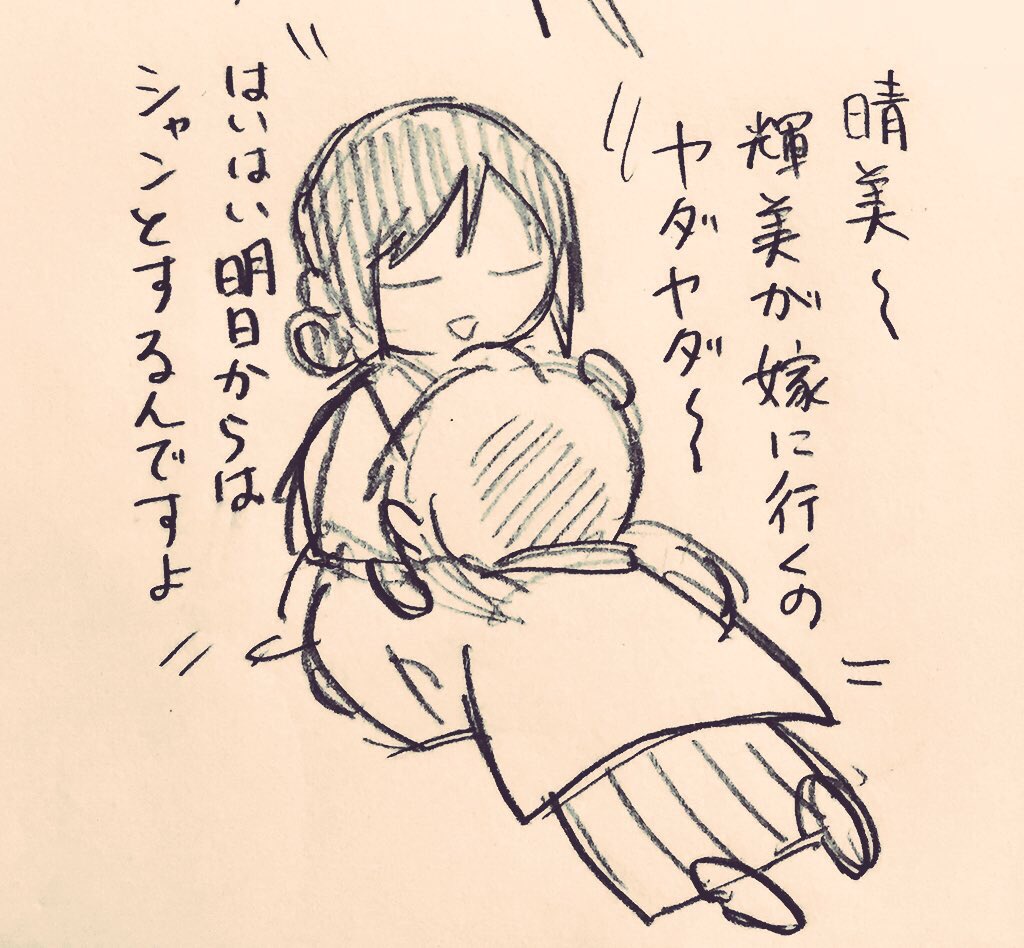 晴美～
輝美が嫁に行くの
ヤダヤダ～
はいはい明日からは
シャンとするんですよ